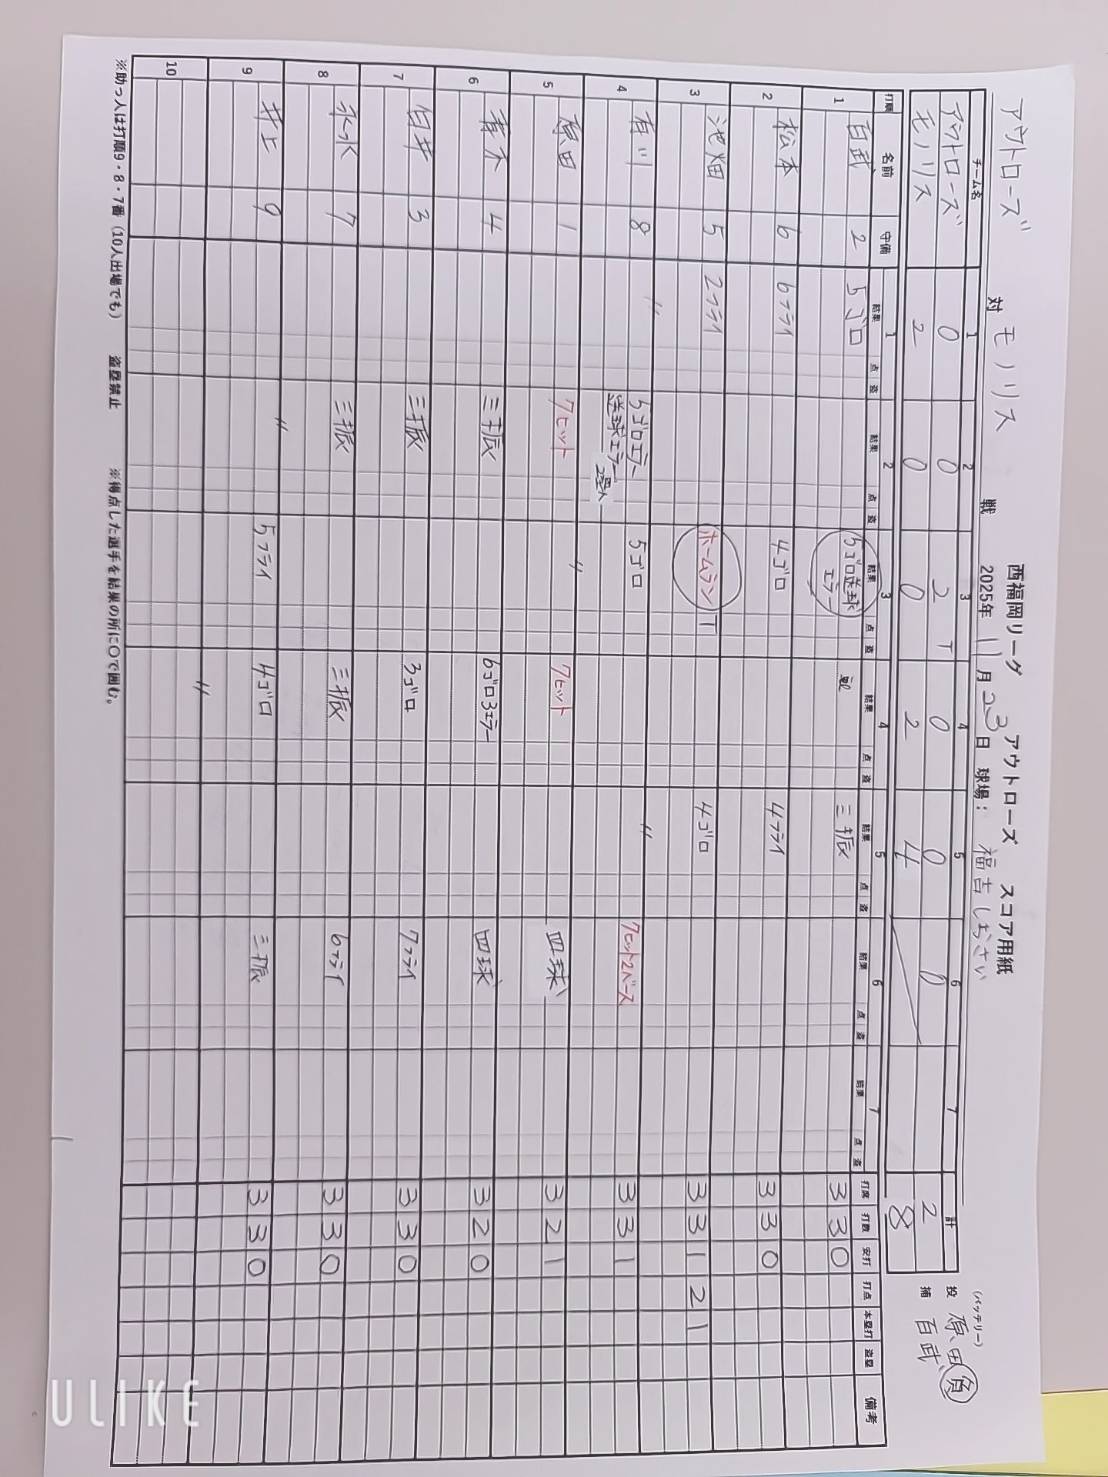 西福岡リーグ アウトローズ スコア用紙
アウトローズ 対 モノリス 戦 2025年 11月 23日 球場： 福吉しおさい
チーム名 1 2 3 4 5 6 7 計 (バッテリー)
アウトローズ 0 0 2 T 0 0 0 2 投 原田 負
モノリス 2 0 0 2 4 8 捕 百武
打順 名前 守備 1 2 3 4 5 6 7 打席 打数 安打 打点 本塁打 盗塁 備考
結果 点 盗 結果 点 盗 結果 点 盗 結果 点 盗 結果 点 盗 結果 点 盗 結果 点 盗
1 百武 2 5ゴロ 5ゴロ送球エラー 三振 3 3 0
2 松本 6 6フライ 4ゴロ 4フライ 3 3 0
3 池畑 5 2フライ ホームラン T 4ゴロ 3 3 1 2 1
4 有川 8 〃 5ゴロエラー 5ゴロ 〃 7ヒット2ベース 3 3 1
送球エラー 2塁へ
5 原田 1 7ヒット 〃 7ヒット 四球 3 2 1
6 青木 4 三振 6ゴロ3エラー 四球 3 2 0
7 白井 3 三振 3ゴロ 7フライ 3 3 0
8 永水 7 三振 三振 6フライ 3 3 0
9 井上 9 〃 5フライ 4ゴロ 三振 3 3 0
10 〃
※助っ人は打順9・8・7番（10人出場でも） 盗塁禁止 ※得点した選手を結果の所に〇で囲む。
ULIKE